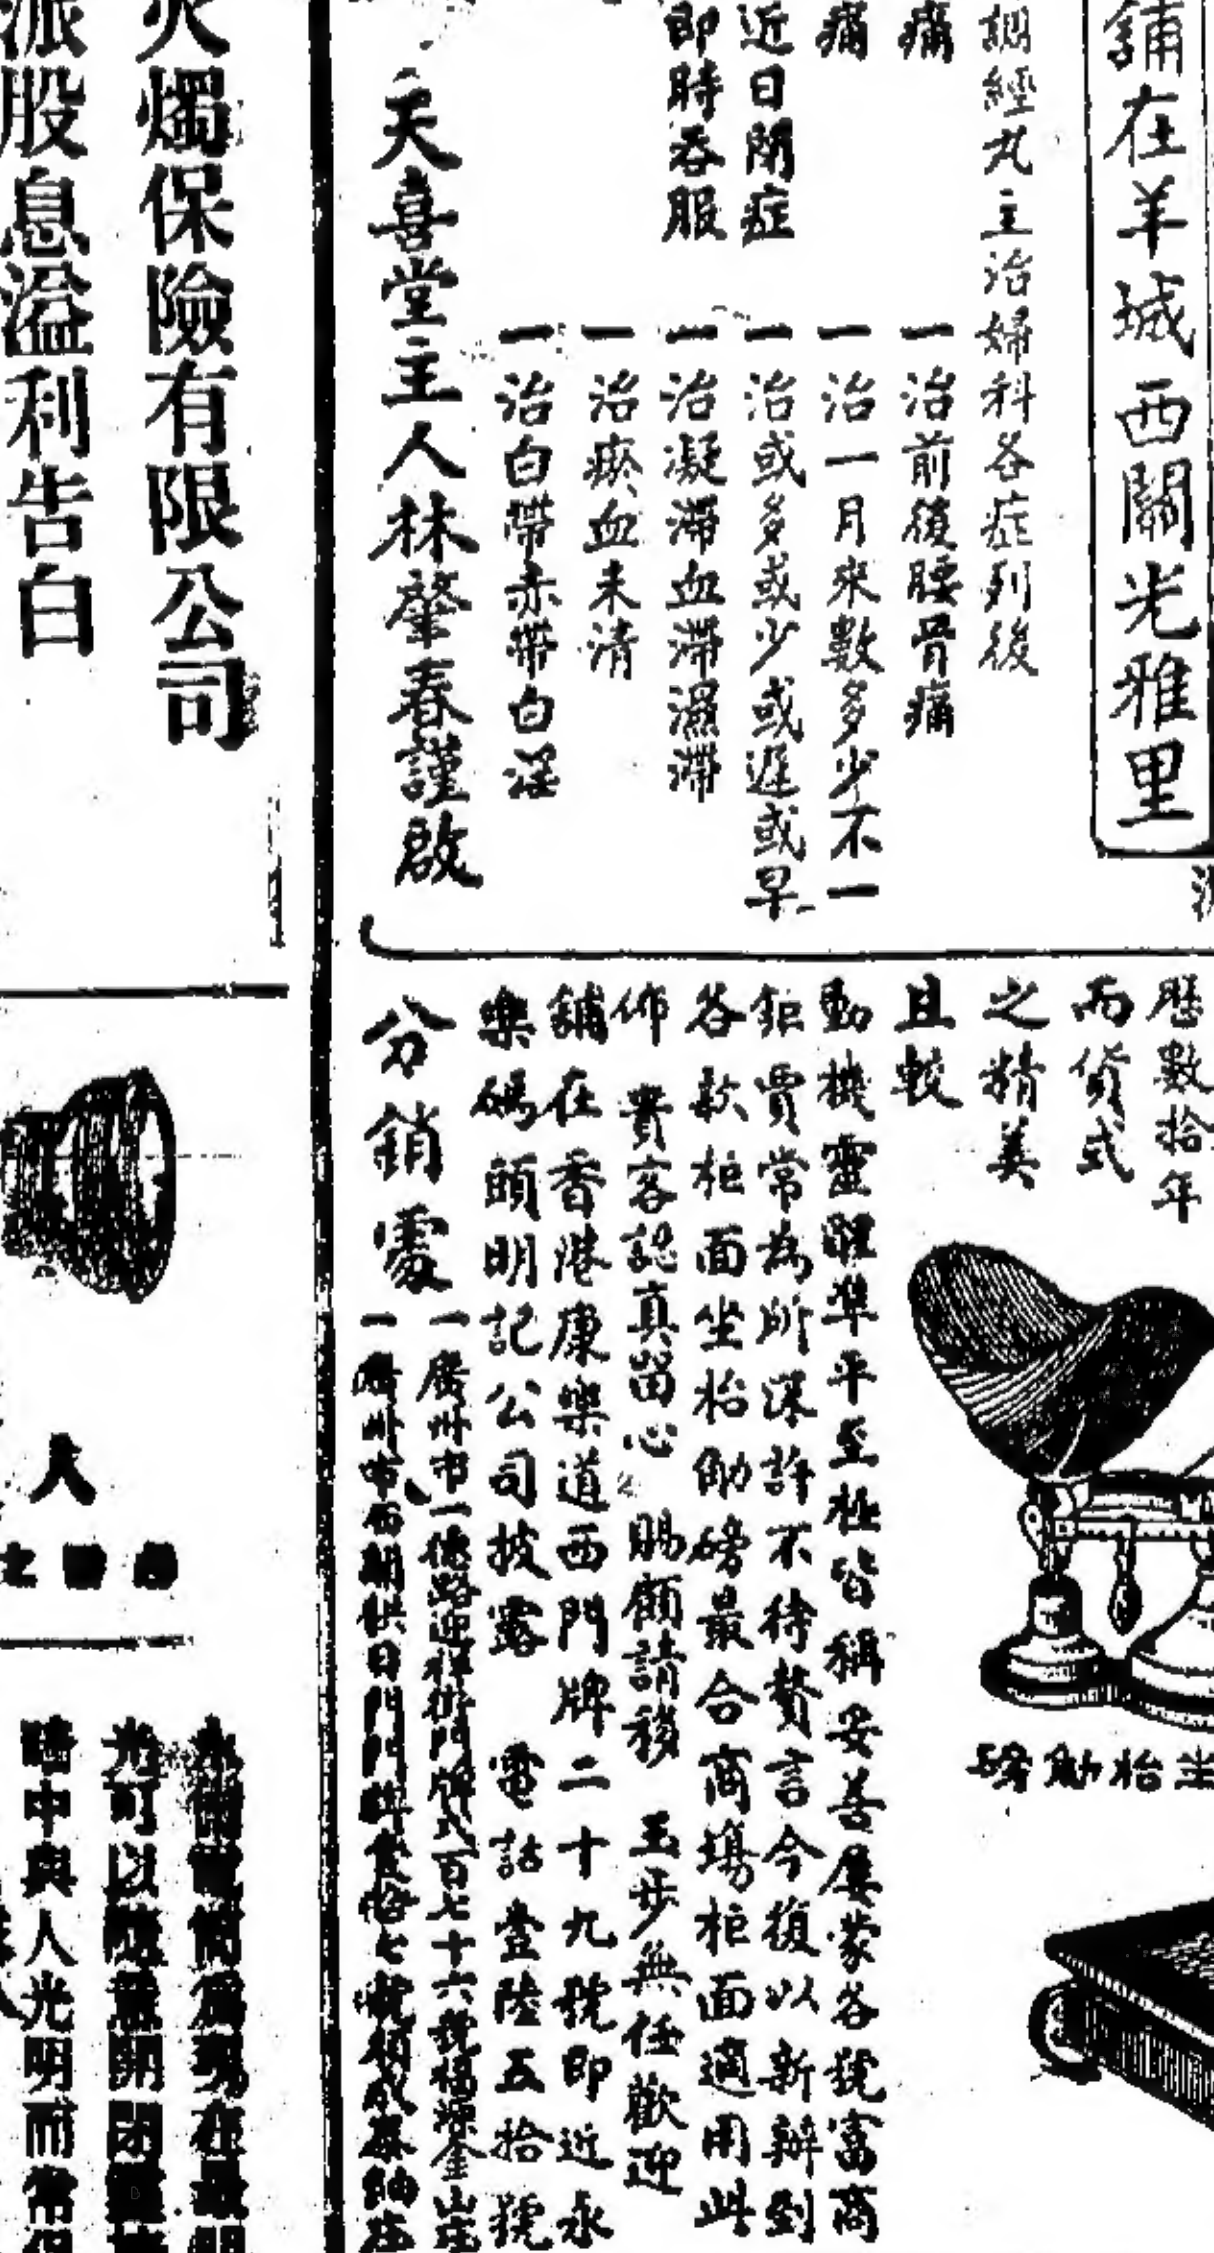 舖在羊城西關光雅里
調經丸主治婦科各症列後
痛
一治前後腰骨痛
痛
一治一月來數多少不一
近日閉症
一治或多或少或遲或早
即時吞服
一治凝滯血滯濕滯
一治瘀血未清
一治白帶赤帶白淫
天喜堂主人林肇春謹啟
歷數拾年
而貨式
之精美
且較
動機靈醒準平至極皆稱妥善屢蒙各號富商
鉅賈常為所深許不待贅言今復以新辦到
各款柜面坐枱觔磅最合商塲柜面適用此
佈 貴客認真留心 賜顧請移 玉步無任歡迎
舖在香港康樂道西門牌二十九號即近永
樂碼頭明記公司披露 電話壹陸五拾號
分銷處
一廣州市一德路迎祥街門牌式百七十六號福源
一廣州市
坐枱觔磅
火燭保險有限公司
派股息溢利告白
人
光可以隨意開閉
暗中與人光明而常保